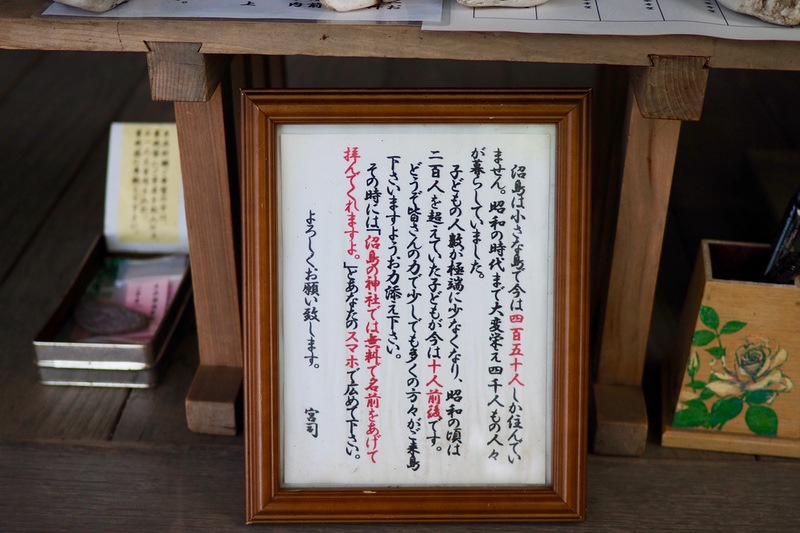 沼島は小さな島で今は四百五十人しか住んでい
ません。昭和の時代まで大変栄え四千人もの人々
が暮らしていました。
子どもの人数が極端に少なくなり、昭和の頃は
二百人を超えていた子どもが今は十人前後です。
どうぞ皆さんの力で少しでも多くの方々がご来島
下さいますようお力添え下さい。
その時には「沼島の神社では無料で名前をあげて
拝んでくれますよ。」とあなたのスマホで広めて下さい。
よろしくお願い致します。
宮司